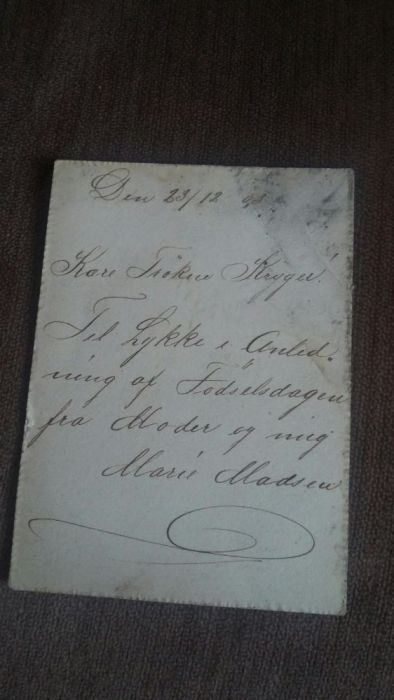 Den 23/12 98
Kære Frøken Kryger!
Til Lykke i Anled-
ning af Fødselsdagen
fra Moder og mig
Marie Madsen